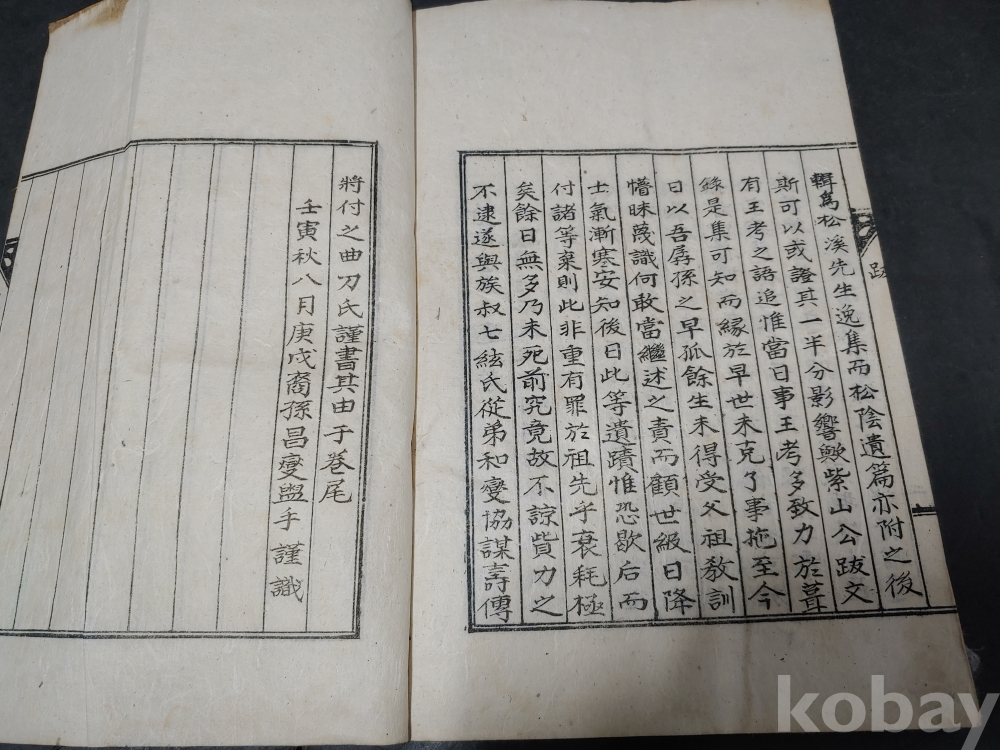 輯爲松溪先生逸集而松陰遺篇亦附之後
斯可以或證其一半分影響歟紫山公跋文
有王考之語追惟當日事王考多致力於葺
錄是集可知而緣於早世未克了事拖至今
日以吾孱孫之早孤餘生未得受父祖敎訓
懵昧蔑識何敢當繼述之責而顧世級日降
士氣漸寒安知後日此等遺蹟惟恐歇后而
付諸等棄則此非重有罪於祖先乎衰耗極
矣餘日無多乃未死前究竟故不諒貲力之
不逮遂與族叔七絃氏從弟和燮協謀壽傳
跋
將付之曲刀氏謹書其由于卷尾
壬寅秋八月庚戌裔孫昌燮盥手謹識
kobay